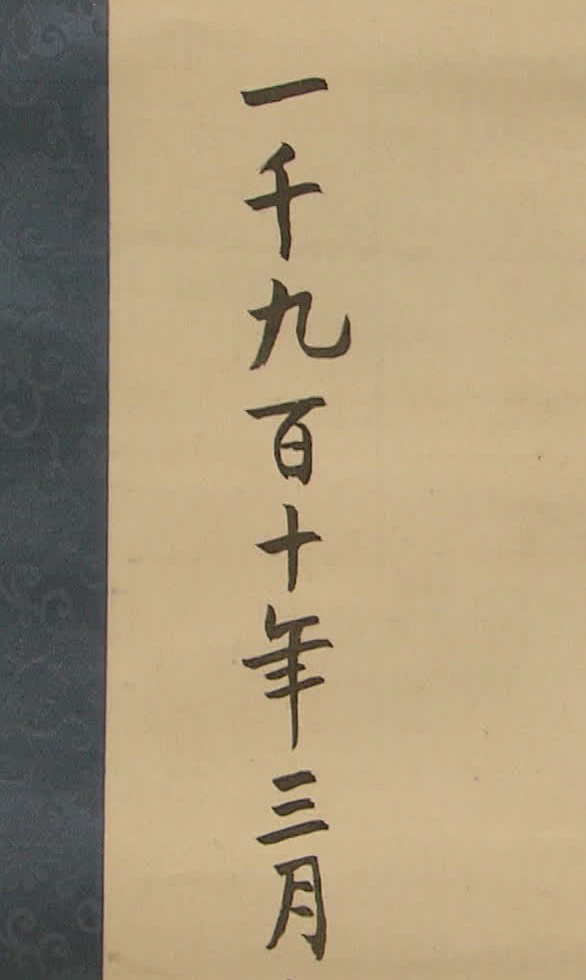 一千九百十年三月